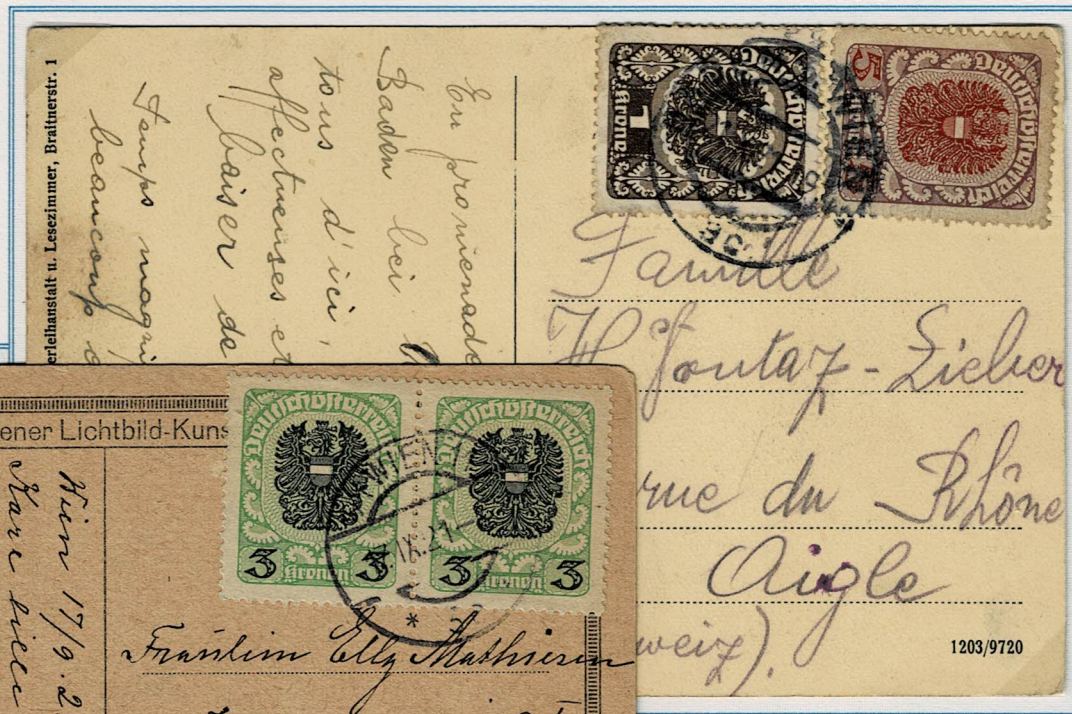 erleihanstalt u. Lesezimmer, Braitnerstr. 1
En promenade
Baden bei
tous d'ici,
affectueuses et
baiser de
Temps magni
beaucoup
1
Krone
Deutschösterreich
5
Deutschösterreich
Famille
Lieber
rue du Rhône
Aigle
weiz).
1203/9720
ener Lichtbild-Kuns
Wien 17/9.2
Kare
Deutschösterreich
3 Kronen 3
Deutschösterreich
3 Kronen 3
WIEN
IX.21
Fräulein Elly Mathiesen